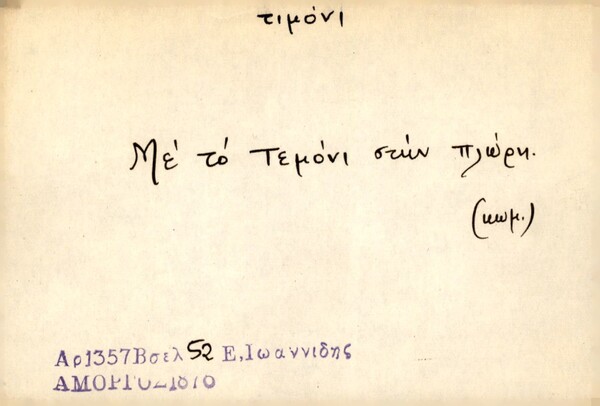 τιμόνι
Μέ τό τεμόνι στήν πλώρη.
(κωμ.)
Αρ1357Βσελ 52 Ε,Ιωαννιδης
ΑΜΟΡΓΟΣ1876